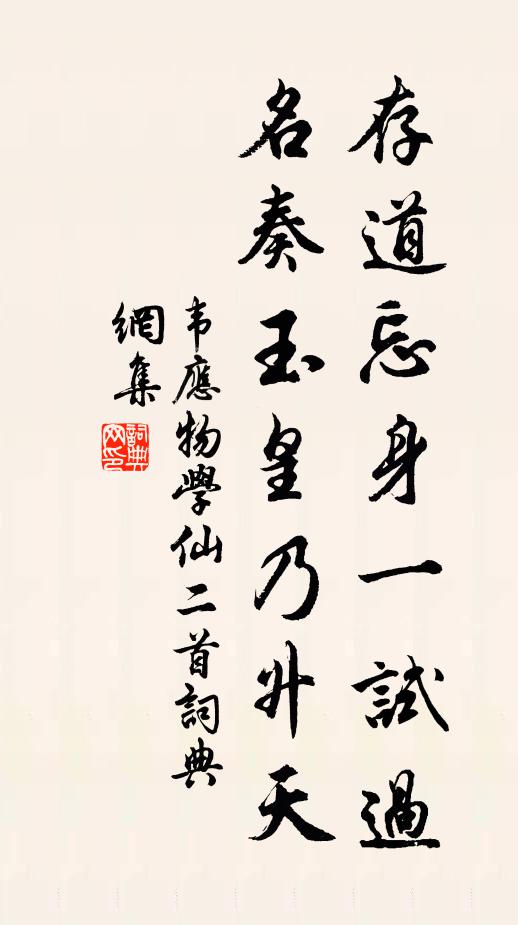 存道忘身一試過
名奏玉皇乃升天
韦應物學仙二首詞典
網集
詞典
网印